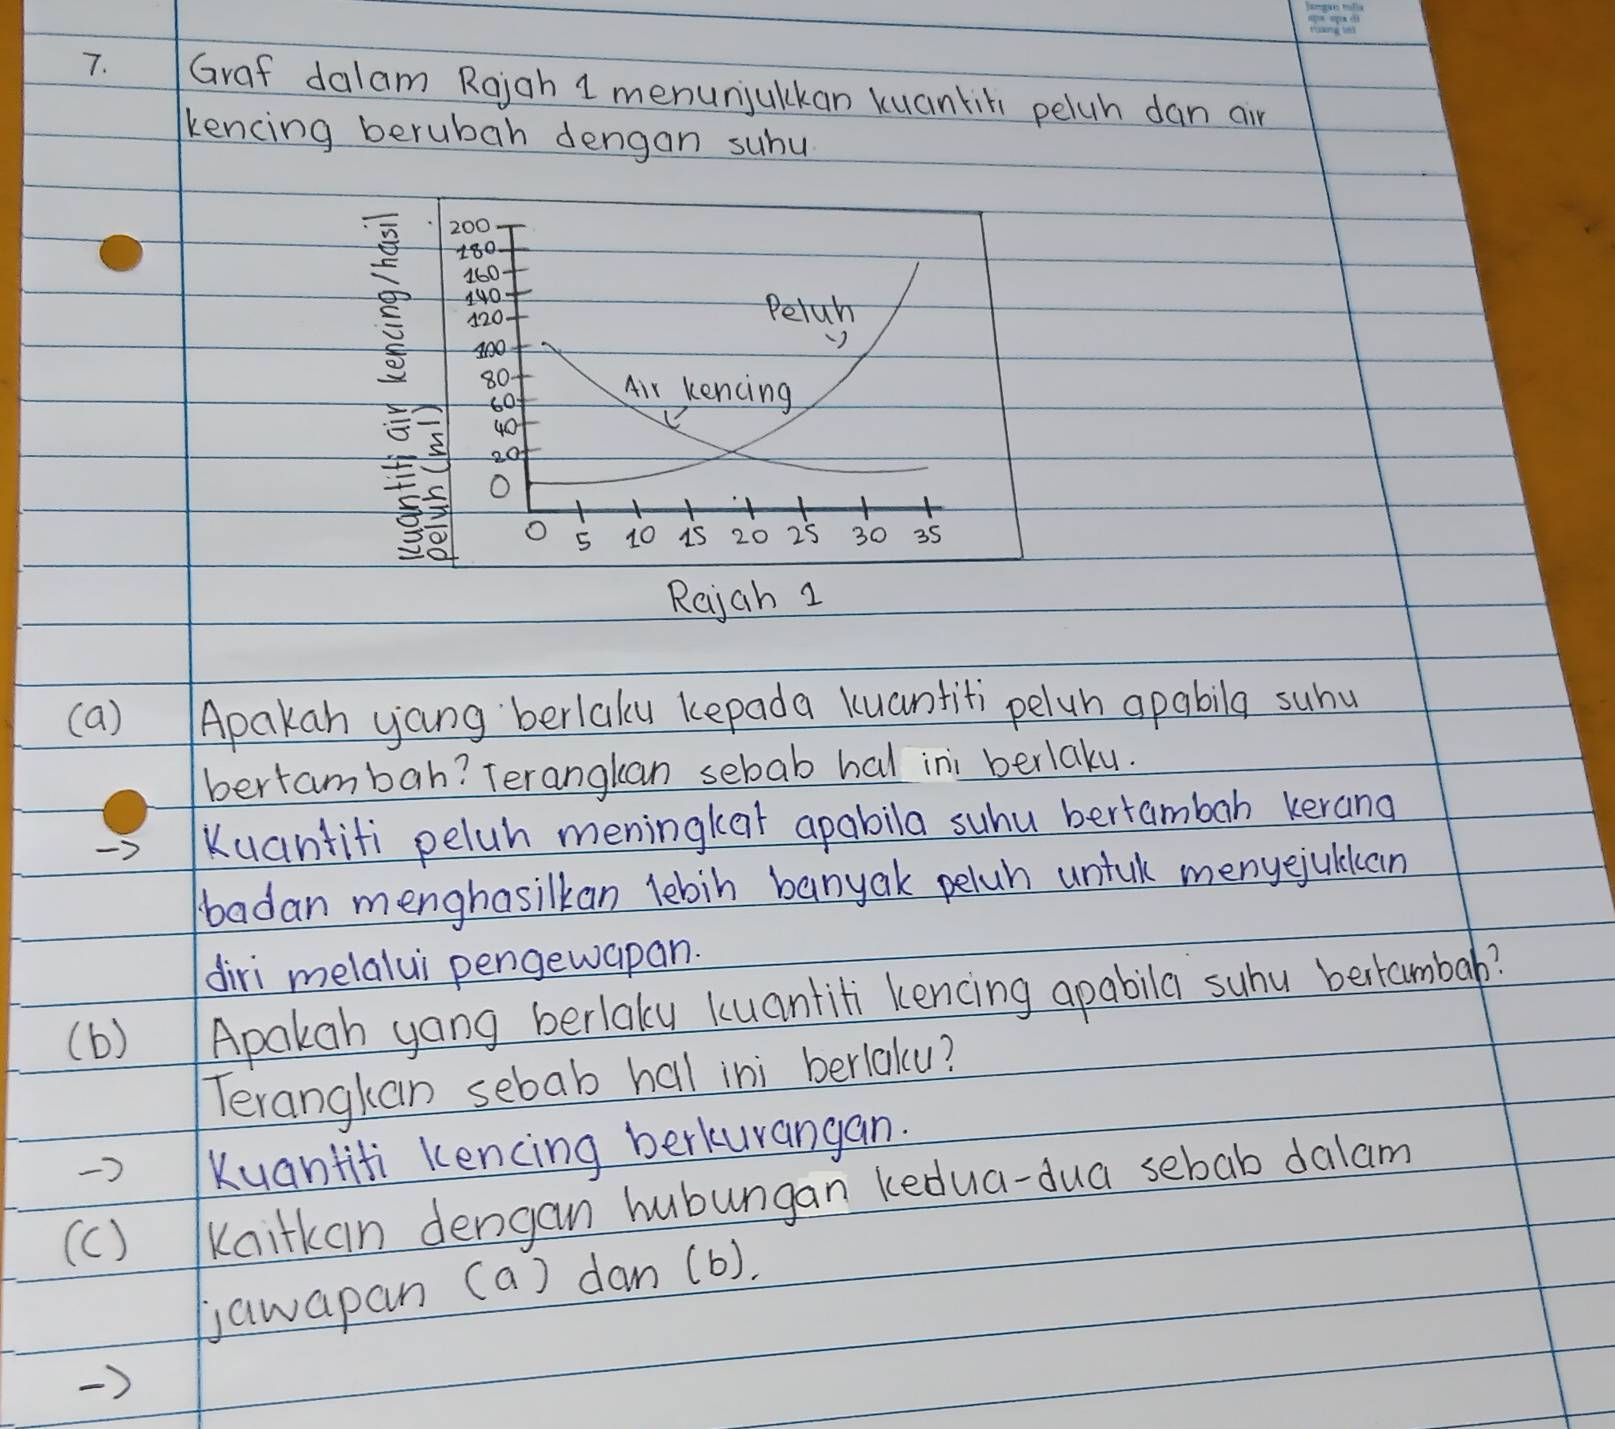 Jangan tulis
apa-apa di
ruang ini
7. Graf dalam Rajah 1 menunjukkan kuantiti peluh dan air
kencing berubah dengan suhu.
kuantiti air kencing/hasil
peluh (ml)
200
180
160
140
120
100
80
60
40
20
0
Peluh
Air kencing
0 5 10 15 20 25 30 35
Rajah 1
(a) Apakah yang berlaku kepada kuantiti peluh apabila suhu
bertambah? Terangkan sebab hal ini berlaku.
-> Kuantiti peluh meningkat apabila suhu bertambah kerana
badan menghasilkan lebih banyak peluh untuk menyejukkan
diri melalui pengewapan.
(b) Apakah yang berlaku kuantiti kencing apabila suhu bertambah?
Terangkan sebab hal ini berlaku?
-> Kuantiti kencing berkurangan.
(c) Kaitkan dengan hubungan kedua-dua sebab dalam
jawapan (a) dan (b).
->